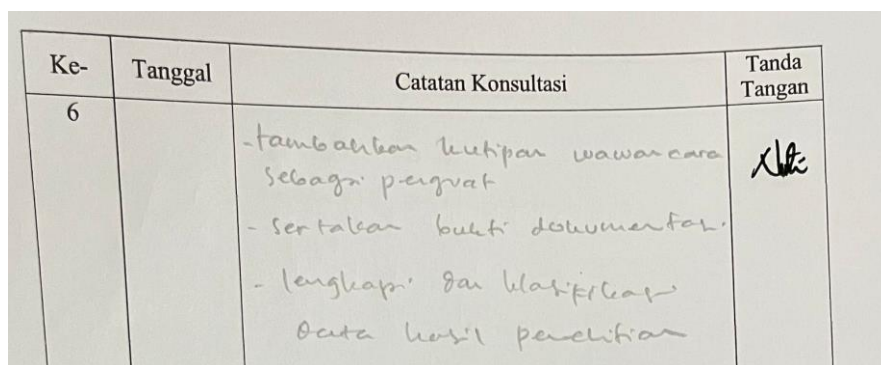 Ke- Tanggal Catatan Konsultasi Tanda Tangan
6
- tambahkan kutipan wawancara
sebagai penguat
- sertakan bukti dokumentasi.
- lengkapi dan klasifikasi
data hasil penelitian